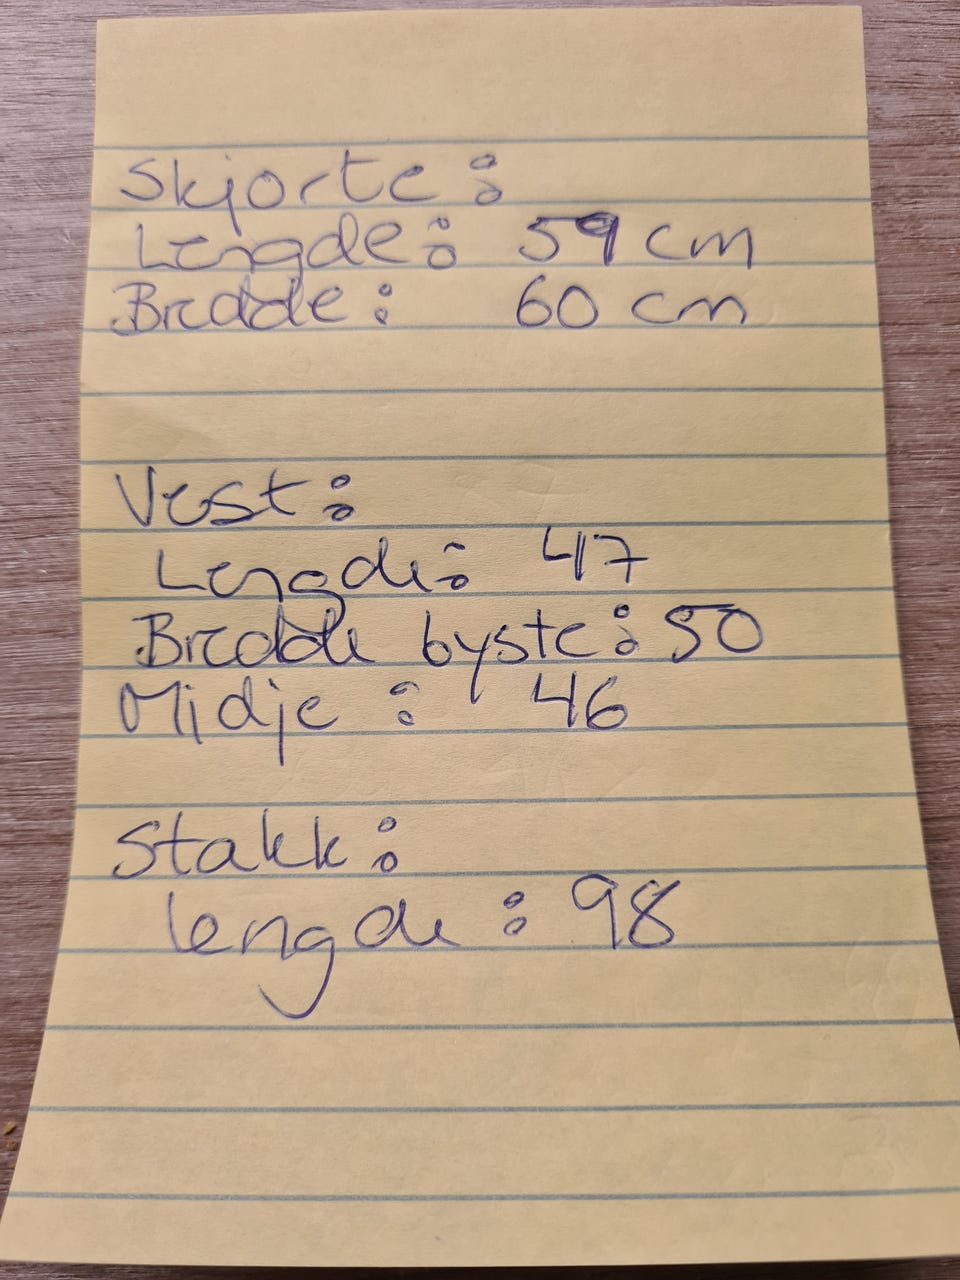 Skjorte:
Lengde: 59 cm
Bredde: 60 cm
Vest:
Lengde: 47
Bredde byste: 50
Midje: 46
Stakk:
lengde: 98